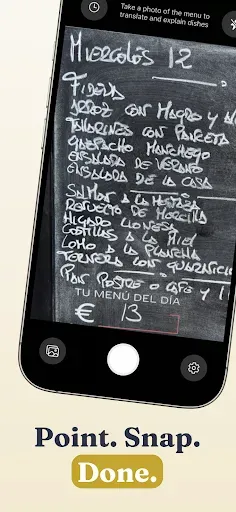 Take a photo of the menu to
translate and explain dishes
MIERCOLES 12
FIDEUA
ARROZ CON MAGRO Y
TALLARINES CON PANCETA
GAZPACHO MANCHEGO
ENSALADA DE VERANO
ENSALADA DE LA CASA
SALMON A LA MOSTAZA
REVUELTO DE MORCILLA
HIGADO LIONESA
COSTILLAS A LA MIEL
LOMO A LA PLANCHA
TERNERA CON
PAN POSTRE O CAFE Y 1
TU MENÚ DEL DÍA
€ 13
Point. Snap.
Done.